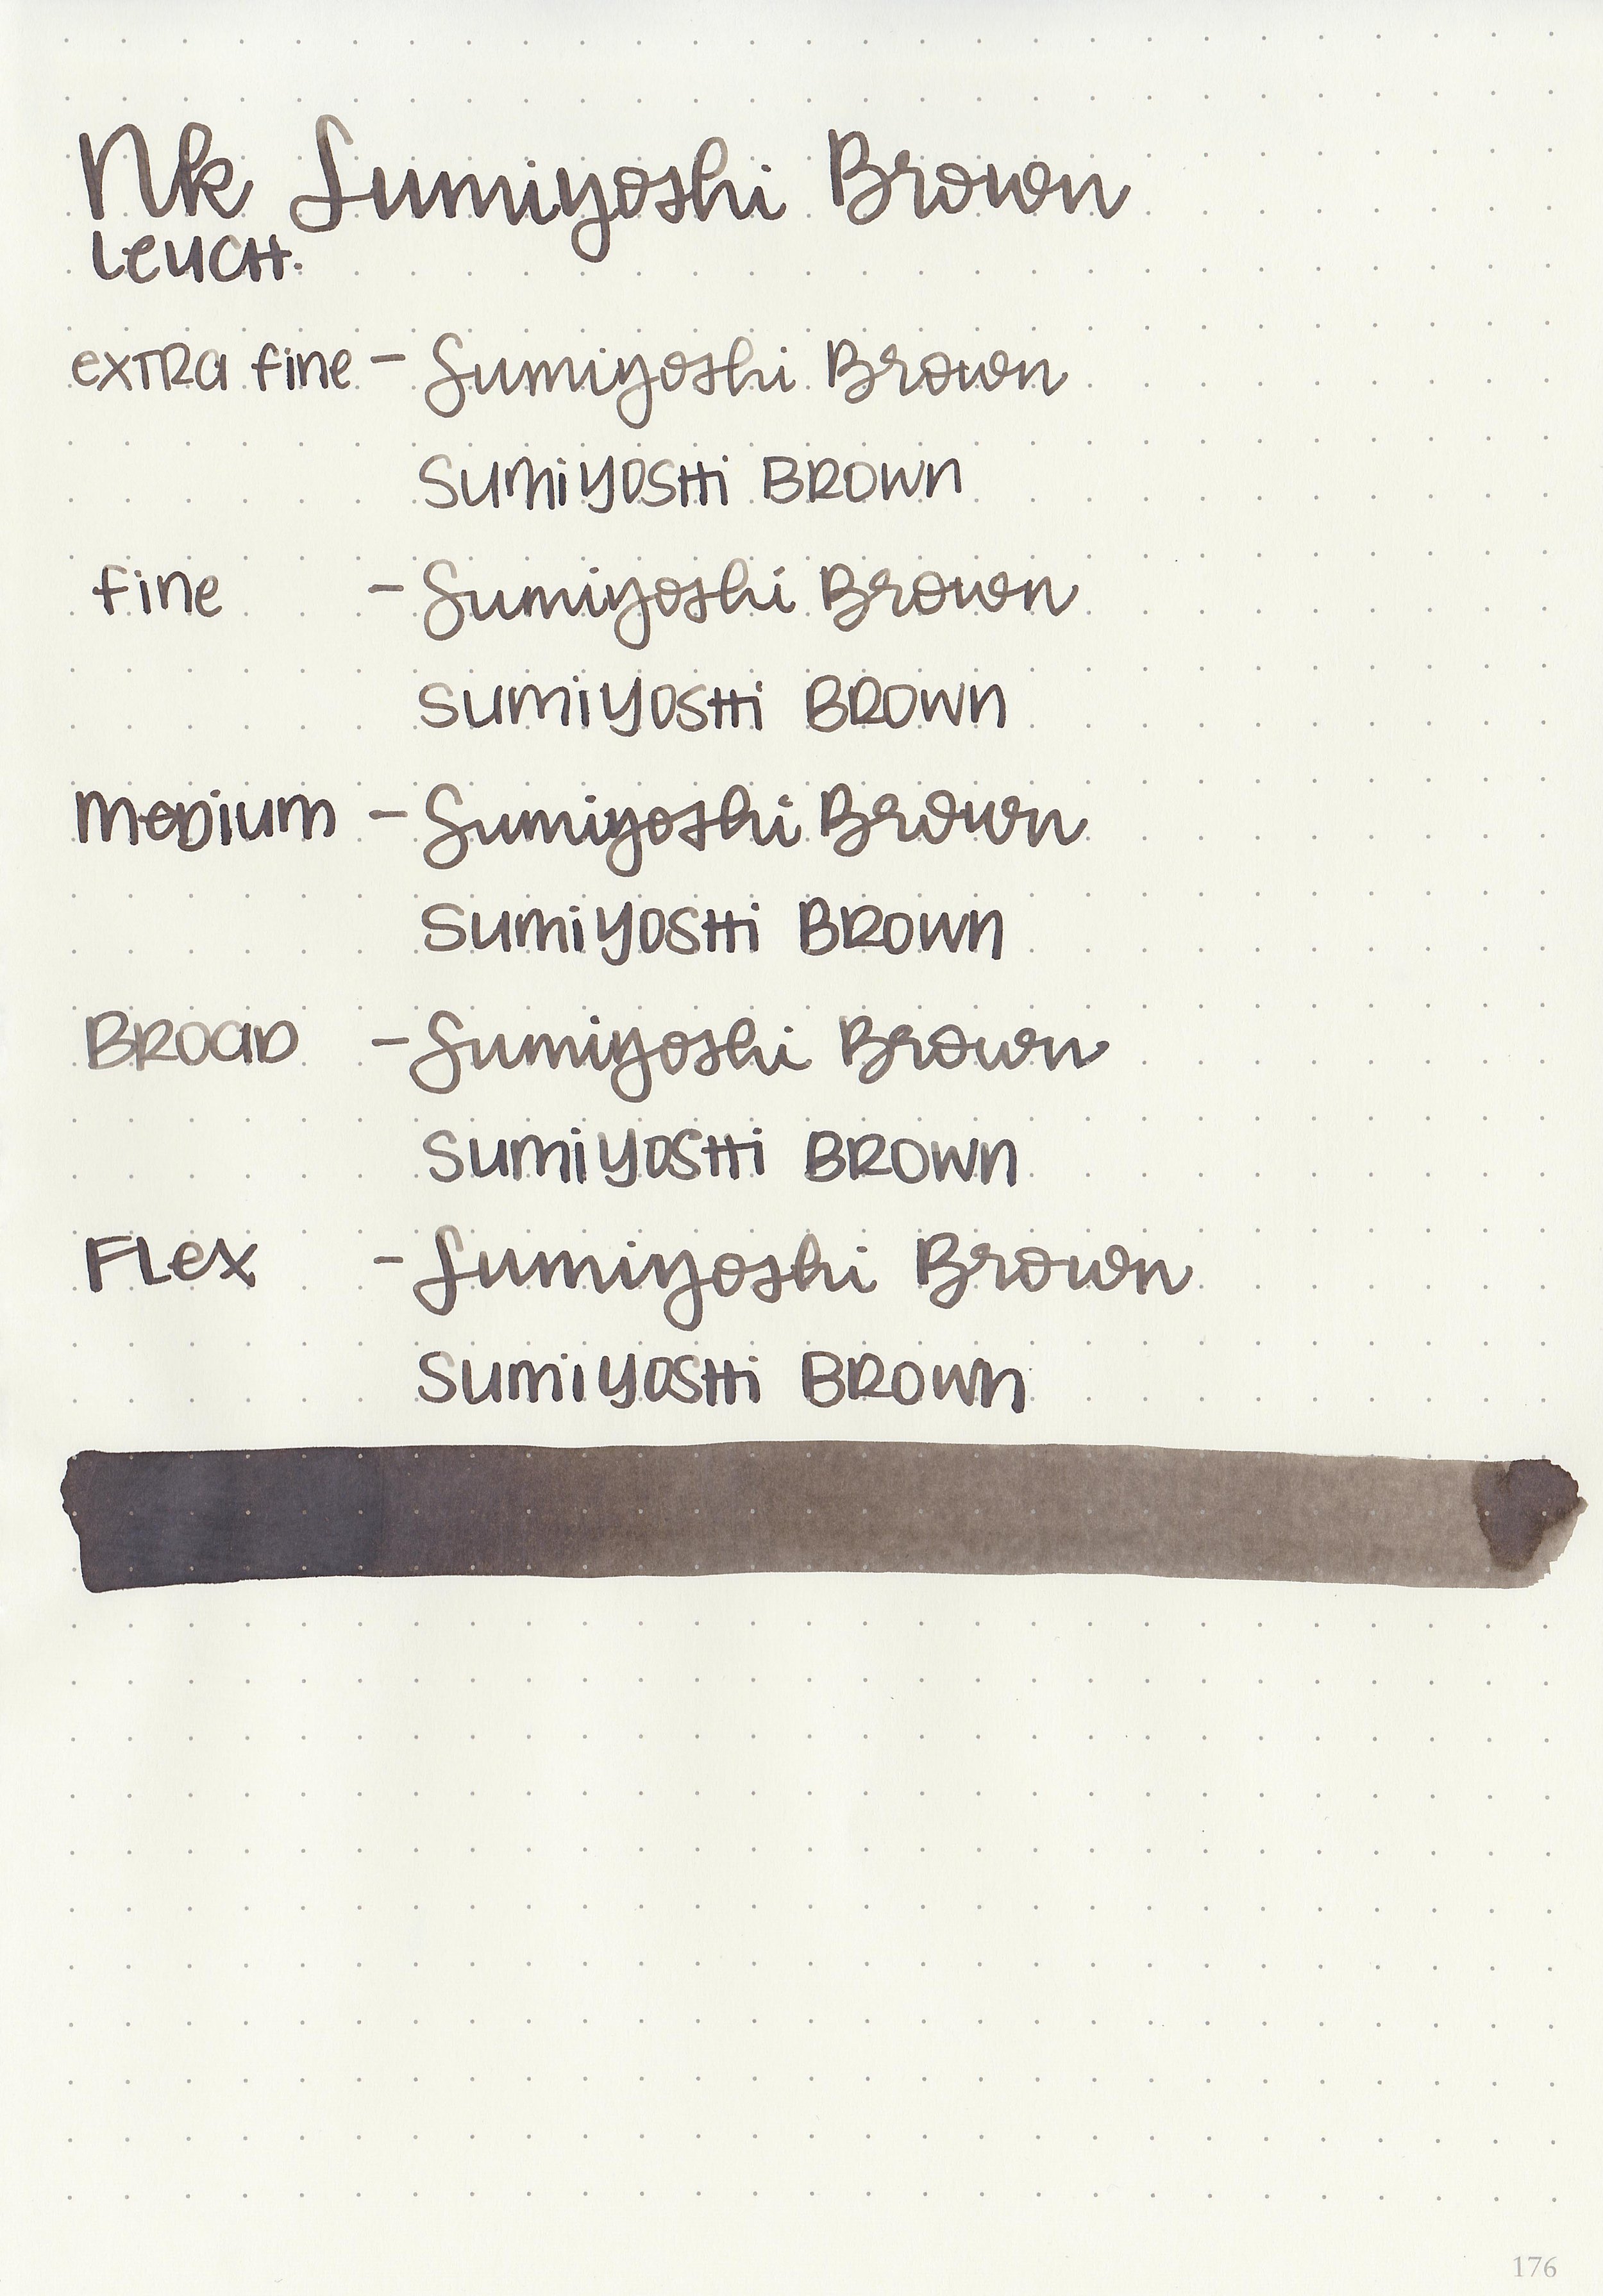 Nk Sumiyoshi Brown
Leuch.
extra fine - Sumiyoshi Brown
Sumiyoshi Brown
fine - Sumiyoshi Brown
Sumiyoshi Brown
Medium - Sumiyoshi Brown
Sumiyoshi Brown
Broad - Sumiyoshi Brown
Sumiyoshi Brown
Flex - Sumiyoshi Brown
Sumiyoshi Brown
176